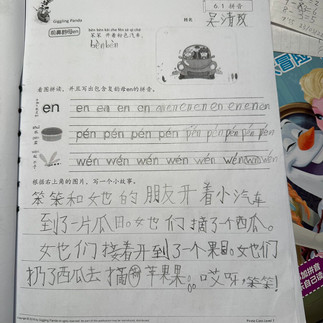 Giggling Panda
6.1 拼音
姓名:
bèn bèn kāi zhe fěn sè qì chē
笨 笨 开 着 粉 色 汽 车。
bèn bèn
看图拼读，并且写出包含复韵母en的拼音。
en en en en en en en en en en en en
pén pén pén pén pén pén pén pén
wén wén wén wén wén wén wén wén
根据右上角的图片，写一个小故事。
笨笨和她的朋友开着小汽车
到了一片瓜田。她们摘了个西瓜。
她们接着开到了一个果园。她们
扔了西瓜去摘苹果。哎呀，笨笨！